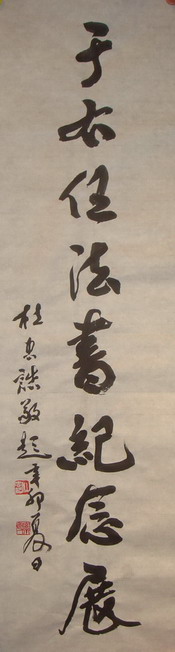 于右任法書紀念展
杜忠誥敬題辛卯夏日